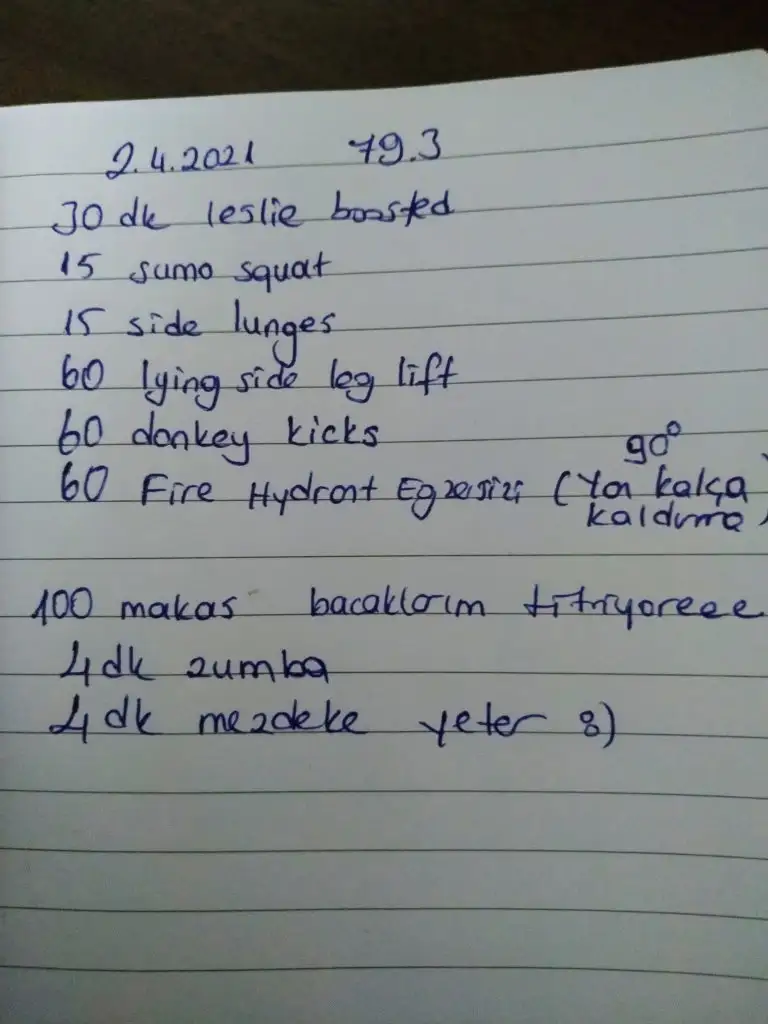 2.4.2021 79.3
30 dk leslie boosted
15 sumo squat
15 side lunges
60 lying side leg lift
60 donkey kicks
90°
60 Fire Hydrant Egzersizi (Yan kalça
kaldırma)
100 makas bacaklarım titriyoreee
4 dk zumba
4 dk mezdeke yeter 8)